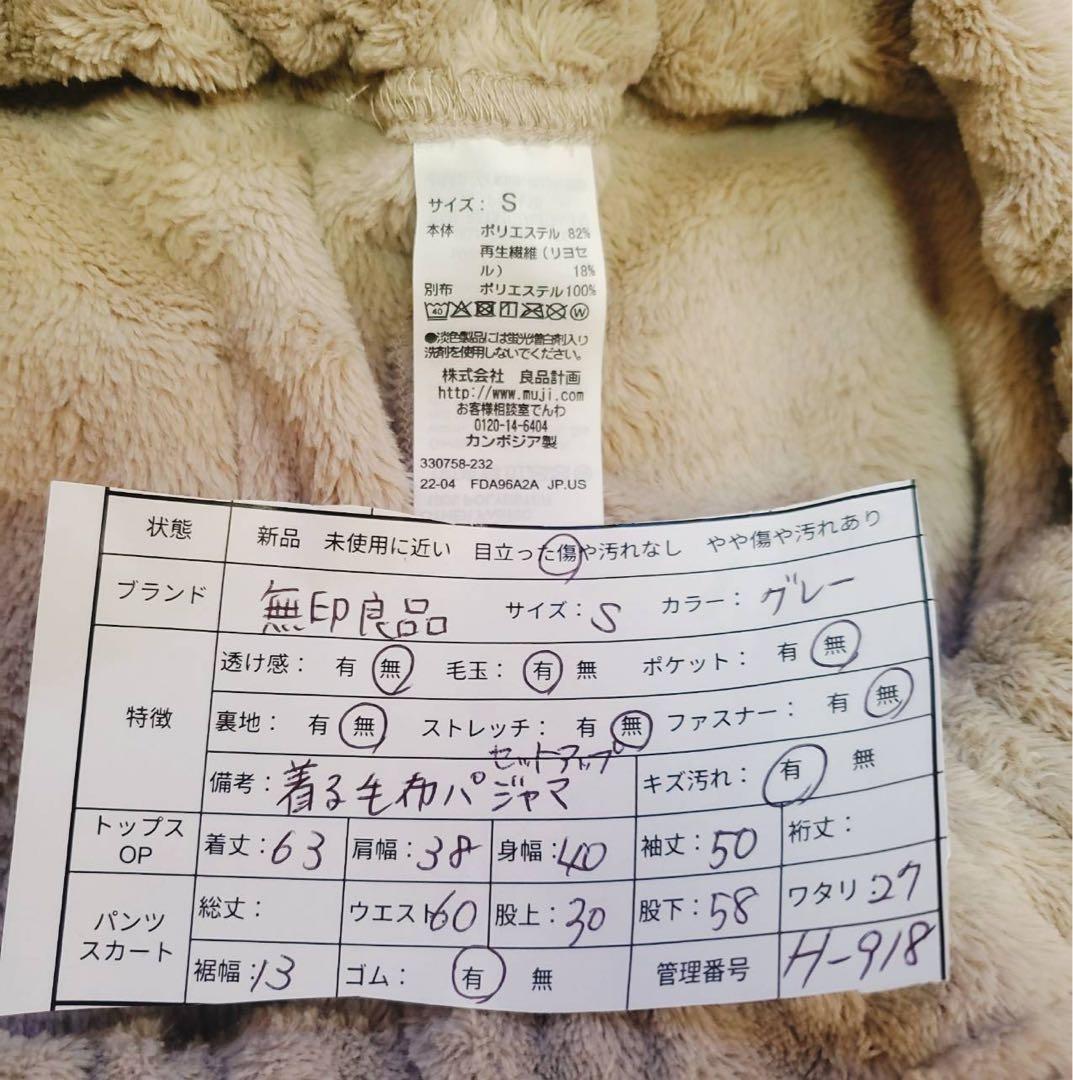 サイズ: S
本体 ポリエステル 82%
再生繊維(リヨセ
ル) 18%
別布 ポリエステル100%
40 W
●淡色製品には蛍光増白剤入り
洗剤を使用しないでください。
株式会社 良品計画
http://www.muji.com
お客様相談室でんわ
0120-14-6404
カンボジア製
330758-232
22-04 FDA96A2A JP.US
状態 新品 未使用に近い 目立った傷や汚れなし やや傷や汚れあり
ブランド 無印良品 サイズ: S カラー: グレー
特徴
透け感: 有 無 毛玉: 有 無 ポケット: 有 無
裏地: 有 無 ストレッチ: 有 無 ファスナー: 有 無
セットアップ
備考: 着る毛布パジャマ キズ汚れ: 有 無
トップス
OP
着丈:63 肩幅:38 身幅:40 袖丈:50 裄丈:
パンツ
スカート
総丈: ウエスト60 股上:30 股下:58 ワタリ:27
裾幅:13 ゴム: 有 無 管理番号 H-918